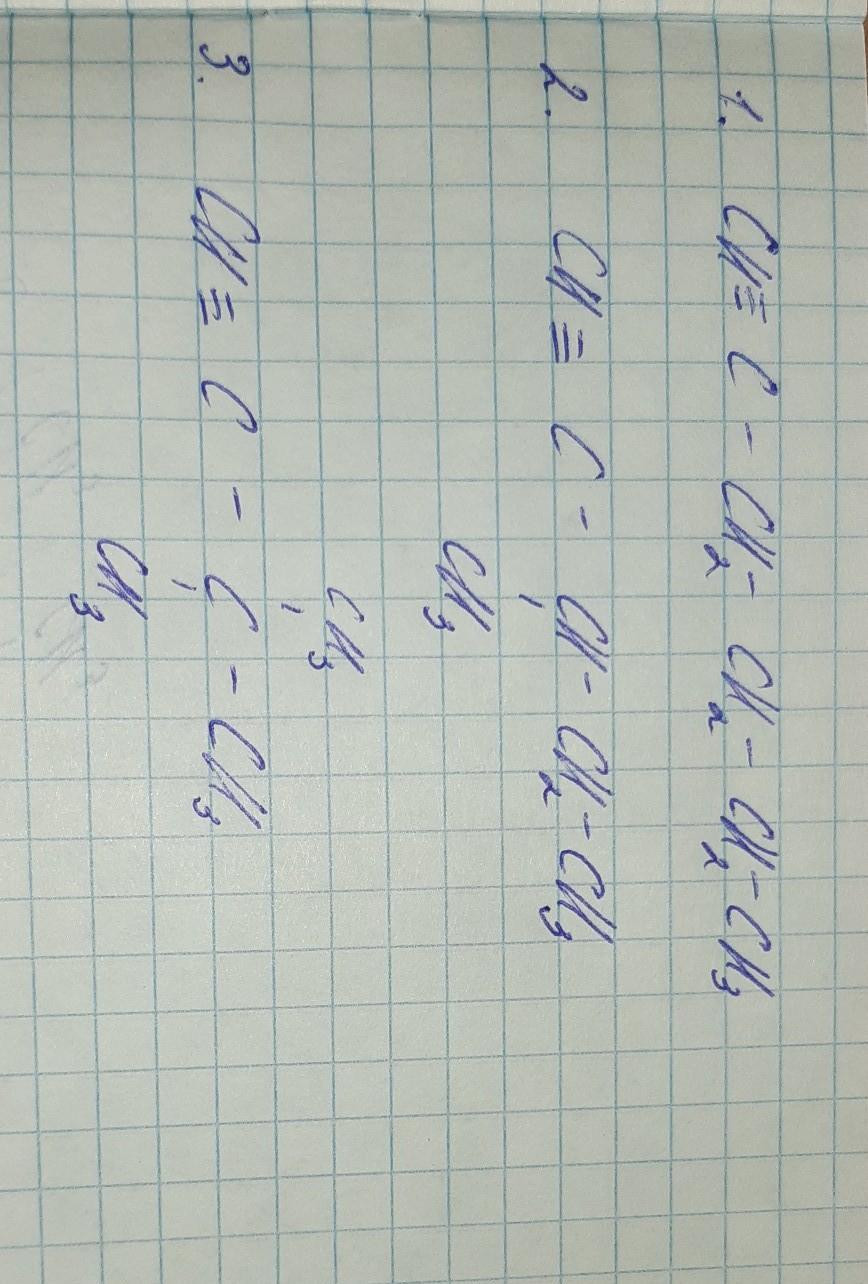 1. CH≡C-CH2-CH2-CH2-CH3
2. CH≡C-CH-CH2-CH3
CH3
CH3
3. CH≡C-C-CH3
CH3